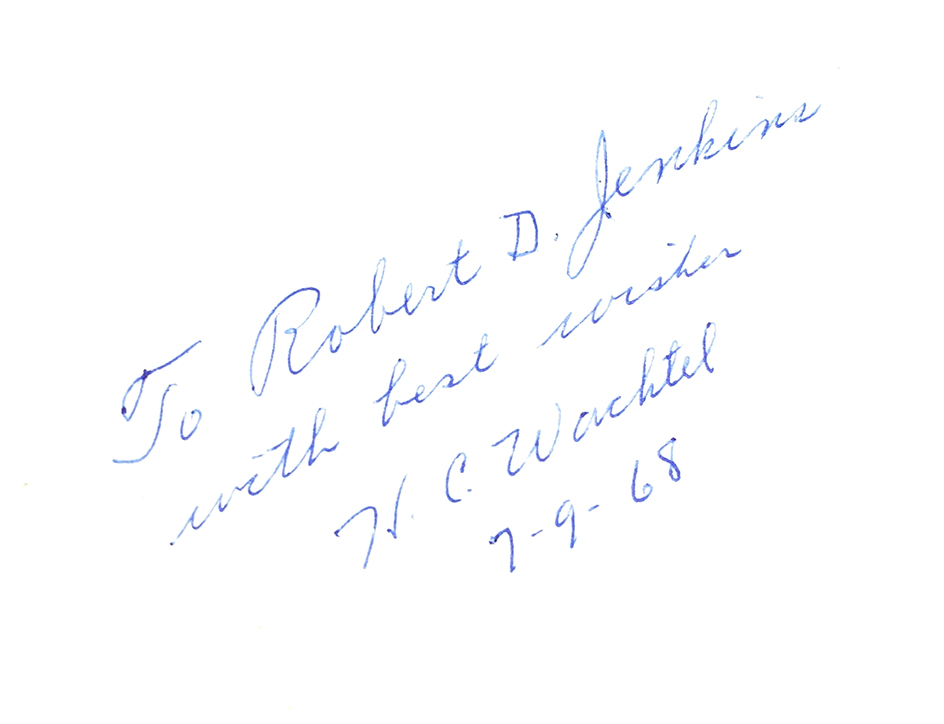 To Robert D. Jenkins
with best wishes
H. C. Wachtel
7-9-68